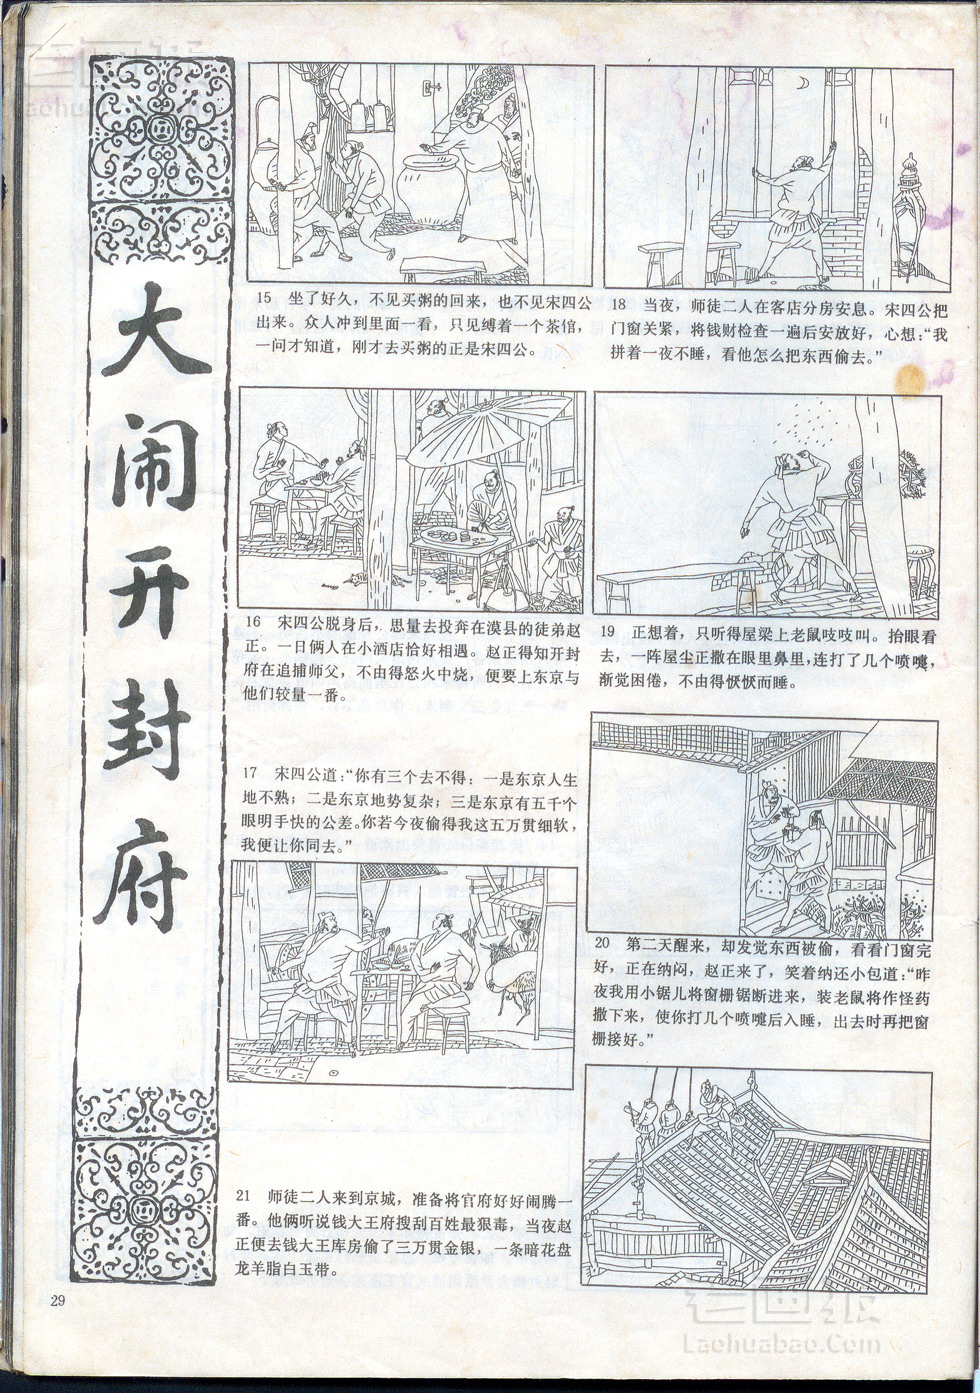 大闹开封府
15 坐了好久，不见买粥的回来，也不见宋四公
出来。众人冲到里面一看，只见缚着一个茶倌，
一问才知道，刚才去买粥的正是宋四公。
16 宋四公脱身后，思量去投奔在漠县的徒弟赵
正。一日俩人在小酒店恰好相遇。赵正得知开封
府在追捕师父，不由得怒火中烧，便要上东京与
他们较量一番。
17 宋四公道：“你有三个去不得：一是东京人生
地不熟；二是东京地势复杂；三是东京有五千个
眼明手快的公差。你若今夜偷得我这五万贯细软，
我便让你同去。”
18 当夜，师徒二人在客店分房安息。宋四公把
门窗关紧，将钱财检查一遍后安放好，心想：“我
拼着一夜不睡，看他怎么把东西偷去。”
19 正想着，只听得屋梁上老鼠吱吱叫。抬眼看
去，一阵屋尘正撒在眼里鼻里，连打了几个喷嚏，
渐觉困倦，不由得恹恹而睡。
20 第二天醒来，却发觉东西被偷，看看门窗完
好，正在纳闷，赵正来了，笑着纳还小包道：“昨
夜我用小锯儿将窗栅锯断进来，装老鼠将作怪药
撒下来，使你打几个喷嚏后入睡，出去时再把窗
栅接好。”
21 师徒二人来到京城，准备将官府好好闹腾一
番。他俩听说钱大王府搜刮百姓最狠毒，当夜赵
正便去钱大王库房偷了三万贯金银，一条暗花盘
龙羊脂白玉带。
29
老画报
Laohuabao.Com